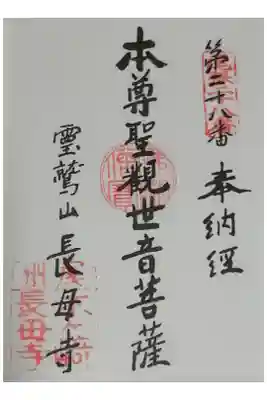 第二十八番 奉納経
本尊聖觀世音菩薩
靈鷲山 長母寺
長母寺